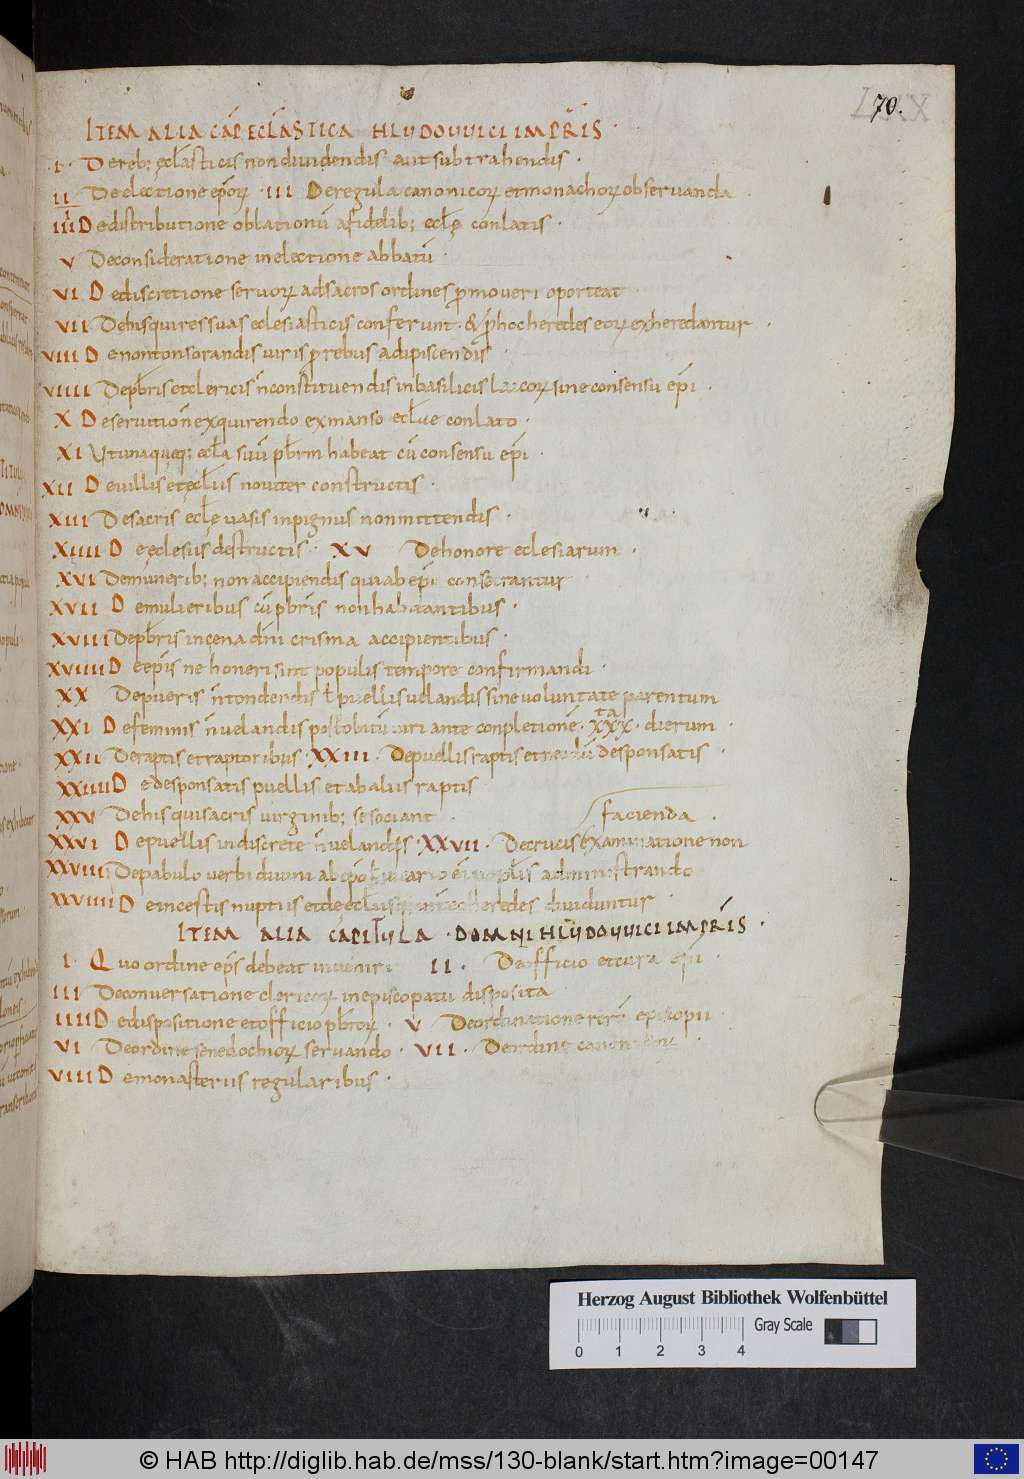 70.
ITEM ALIA CAP ECLASTICA HLUDOUUICI IMPRIS ·
·I· De reb; eclasticis non diuidendis aut subtrahendis ·
II De electione epōrum · III De regula canonicorum et monachorum obseruanda ·
IIII De distributione oblationū a fidelib; ecłę conlatis ·
V De consideratione in electione abbatū ·
VI De discretione seruorum ad sacros ordines pmoueri oporteat ·
VII De his qui res suas eclesiasticis conferunt · & p hoc heredes eorum exheredantur ·
VIII De non tonsorandis uiris p rebus adipiscendis ·
VIIII De pbris et clericis n̄ constituendis in basilicis laicorum sine consensu epi ·
X De seruitio n̄ exquirendo ex manso ecłue conlato ·
XI Ut unaqueq; ecła suū pbrm habeat cū consensu epi ·
XII De uillis et ęcłiis nouiter constructis ·
XIII De sacris ecłę uasis in pignus non mittendis ·
XIIII De eclesiis destructis · XV De honore eclesiarum ·
XVI De munerib; non accipiendis qui ab epi consecrantur
XVII De mulieribus cū pbris non habitantibus ·
XVIII De pbris in cena dni crisma accipientibus ·
XVIIII De epis ne honeri sint populis tempore confirmandi ·
XX De pueris n̄ tondendis ł puellis uelandis sine uoluntate parentum
XXI De feminis n̄ uelandis post obitū uiri ante conpletione · XXX ta · dierum ·
XXII De raptis et raptoribus · XXIII · De puellis raptis desponsatis ·
XXIIII De desponsatis puellis et ab aliis raptis
XXV De his qui sacris uirginib; se sociant · facienda ·
XXVI De puellis indiscrete n̄ uelandis · XXVII · De crucis examinatione non
XXVIII De pabulo uerbi diuini ab administrando
XXVIIII De incestis nuptiis et de heredes diuiduntur ·
ITEM ALIA CAPITULA · DOMNI HLUDOUUICI IMPRIS ·
I · Quo ordine eps debeat II · De officio et cura epi ·
III De conuersatione clericorum in episcopatu disposita
IIII De dispositione et officio pbrorum · V De ordinatione episcopii ·
VI De ordine senedochiorum seruando · VII · De ordine canonicorum ·
VIII De monasteriis regularibus ·
Herzog August Bibliothek Wolfenbüttel
Gray Scale
0 1 2 3 4
© HAB http://diglib.hab.de/mss/130-blank/start.htm?image=00147